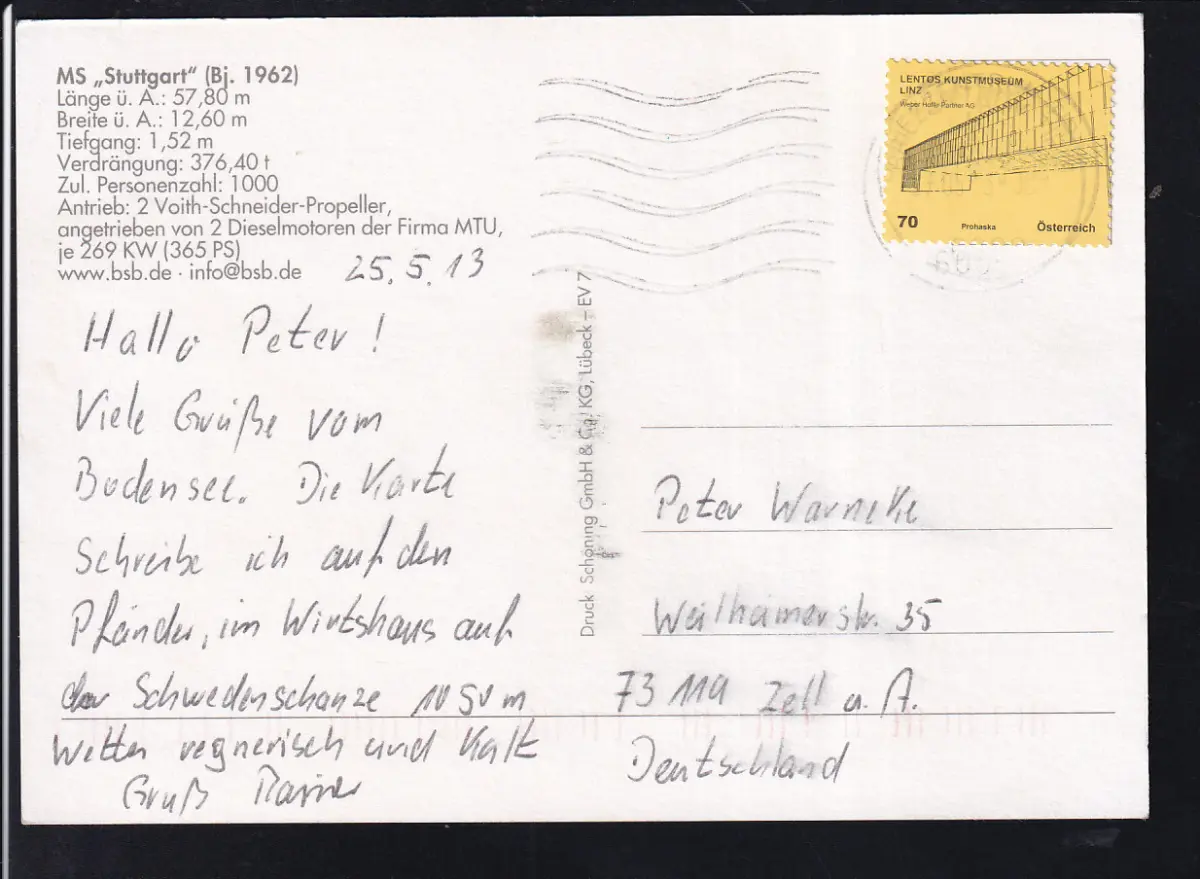 MS „Stuttgart“ (Bj. 1962)
Länge ü. A.: 57,80 m
Breite ü. A.: 12,60 m
Tiefgang: 1,52 m
Verdrängung: 376,40 t
Zul. Personenzahl: 1000
Antrieb: 2 Voith-Schneider-Propeller,
angetrieben von 2 Dieselmotoren der Firma MTU,
je 269 KW (365 PS)
www.bsb.de · info@bsb.de
25.5.13
Hallo Peter!
Viele Grüße vom
Bodensee. Die Karte
Schreibe ich auf den
Pfänder, im Wirtshaus auf
der Schwedenschanze 1050 m
Wetter regnerisch und Kalt
Gruß Rainer
Druck Schöning GmbH & Co. KG, Lübeck – EV 7
LENTOS KUNSTMUSEUM
LINZ
Weber Hofer Partner AG
70
Prohaska
Österreich
Peter Warneke
Weilheimerstr. 35
73119 Zell a. A.
Deutschland